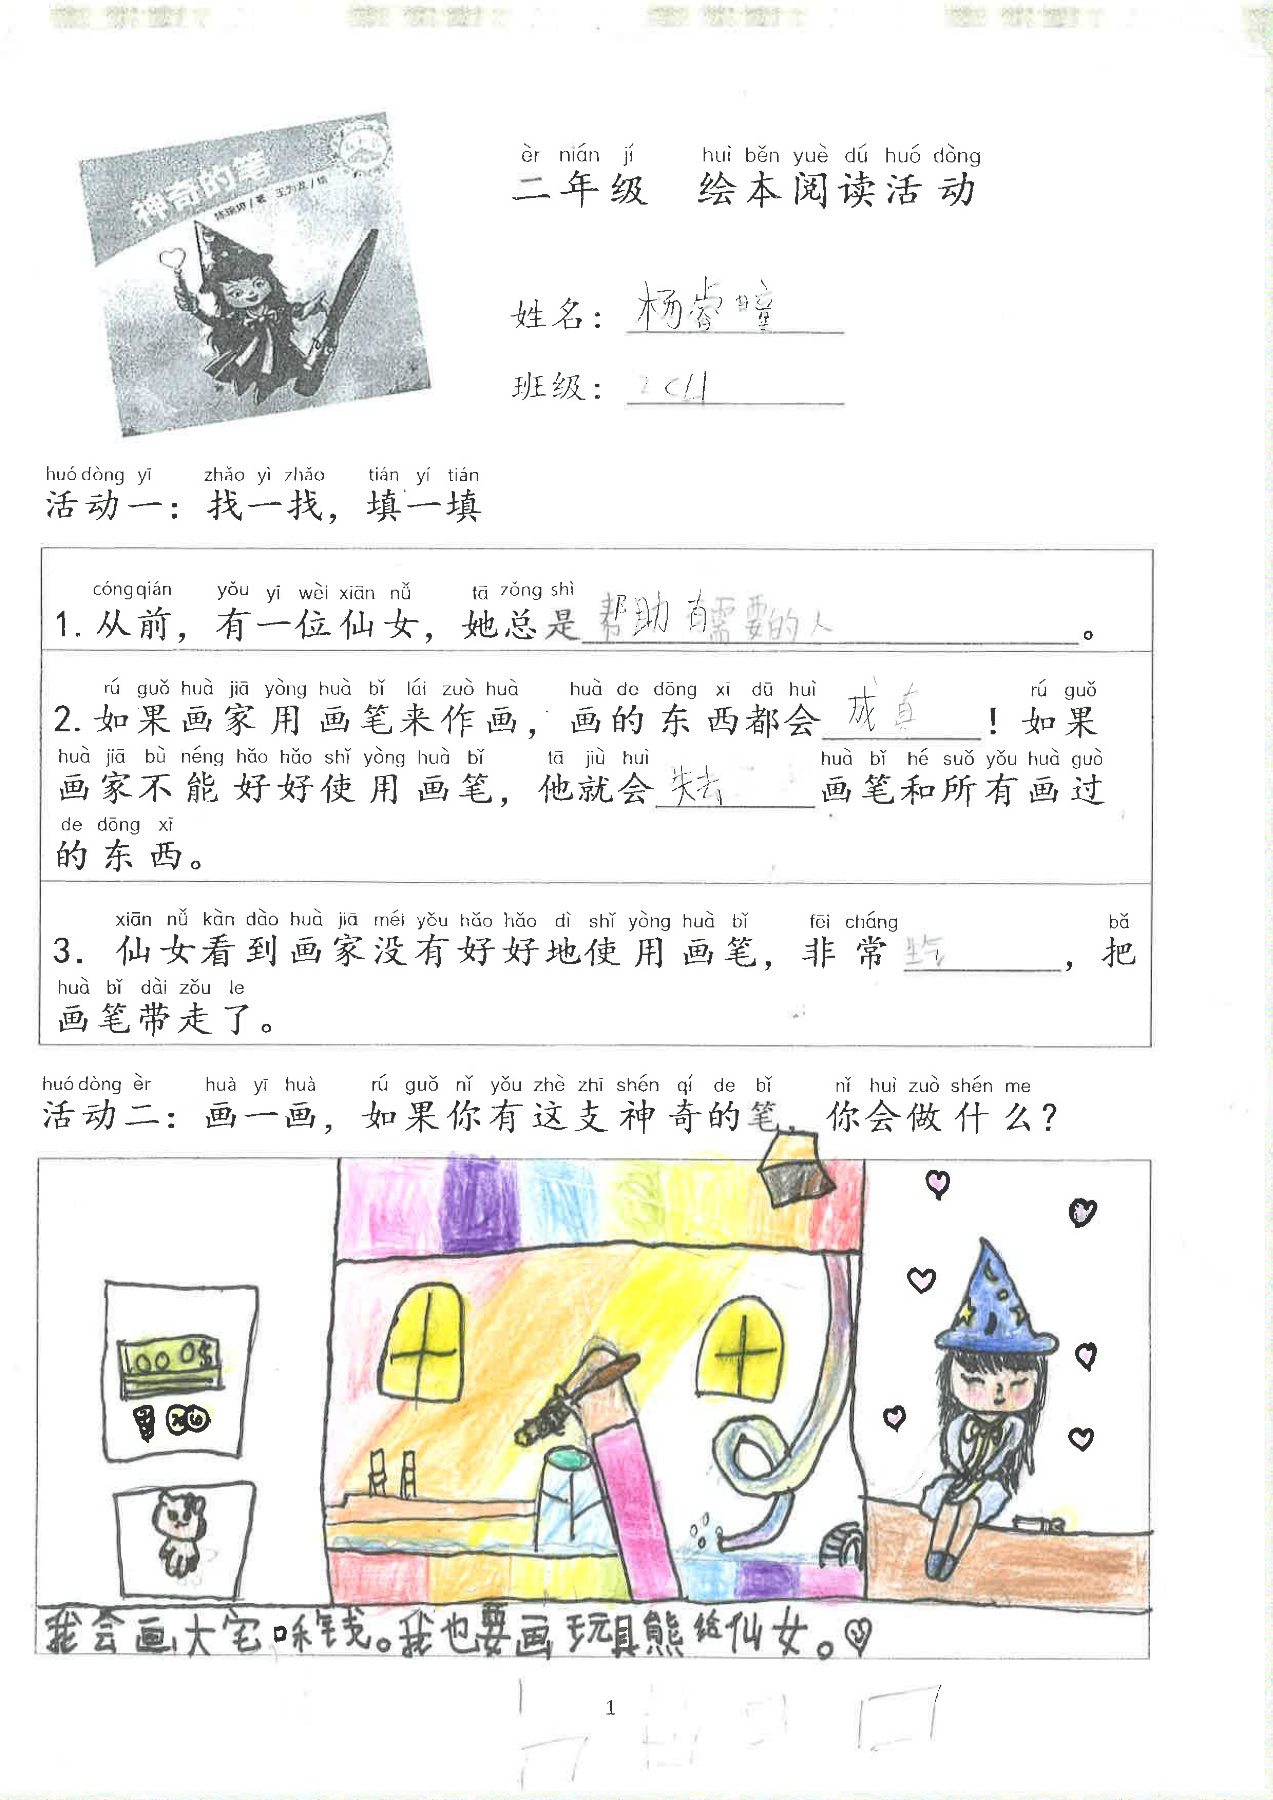 神奇的笔
èr nián jí huì běn yuè dú huó dòng
二年级 绘本阅读活动
姓名：杨睿曈
班级：
huó dòng yī zhǎo yì zhǎo tián yí tián
活动一：找一找，填一填
cóng qián yǒu yī wèi xiān nǚ tā zǒng shì
1. 从前，有一位仙女，她总是帮助有需要的人。
rú guǒ huà jiā yòng huà bǐ lái zuò huà huà de dōng xi dū huì rú guǒ
2. 如果画家用画笔来作画，画的东西都会成真！如果
huà jiā bù néng hǎo hǎo shǐ yòng huà bǐ tā jiù huì huà bǐ hé suǒ yǒu huà guò
画家不能好好使用画笔，他就会失去画笔和所有画过
de dōng xī
的东西。
xiān nǚ kàn dào huà jiā méi yǒu hǎo hǎo dì shǐ yòng huà bǐ fēi cháng bǎ
3. 仙女看到画家没有好好地使用画笔，非常，把
huà bǐ dài zǒu le
画笔带走了。
huó dòng èr huà yī huà rú guǒ nǐ yǒu zhè zhī shén qí de bǐ nǐ huì zuò shén me
活动二：画一画，如果你有这支神奇的笔，你会做什么？
1000$
我会画大宅和钱。我也要画玩具熊给仙女。
1